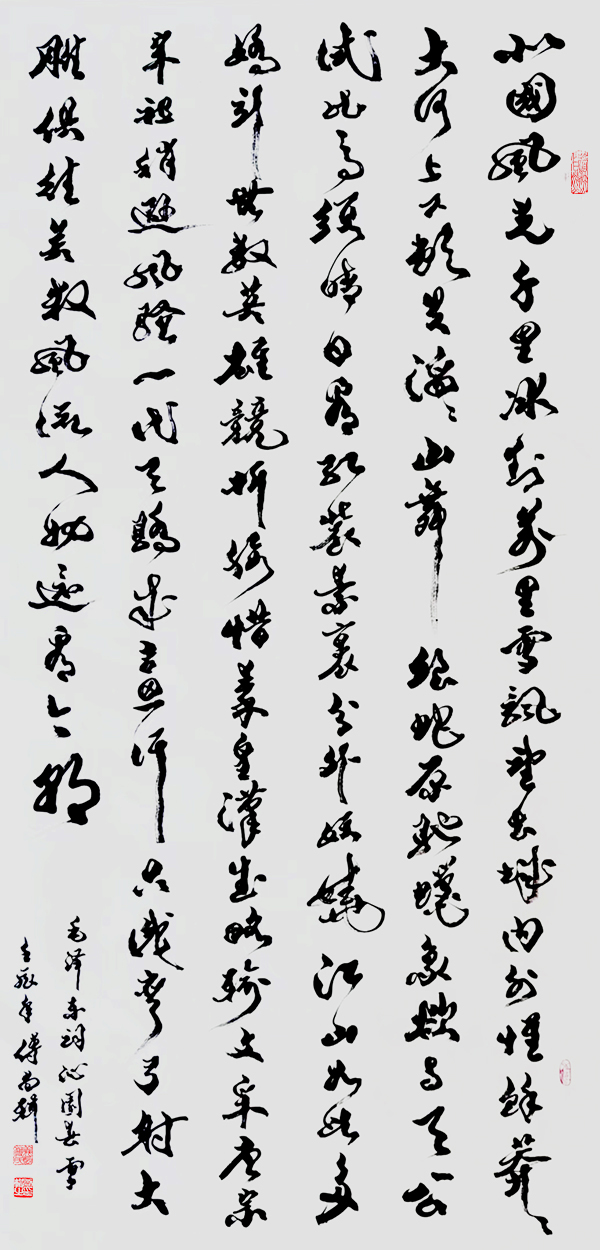 北國風光千里冰封萬里雪飄望長城內外惟餘莽〻
大河上下頓失滔〻山舞銀蛇原馳蠟象欲與天公
試比高須晴日看紅裝素裹分外妖嬈江山如此多
嬌引無數英雄競折腰惜秦皇漢武略輸文采唐宗
宋祖稍遜風騷一代天驕成吉思汗只識彎弓射大
雕俱往矣數風流人物還看今朝
毛泽东词沁園春雪
年傅